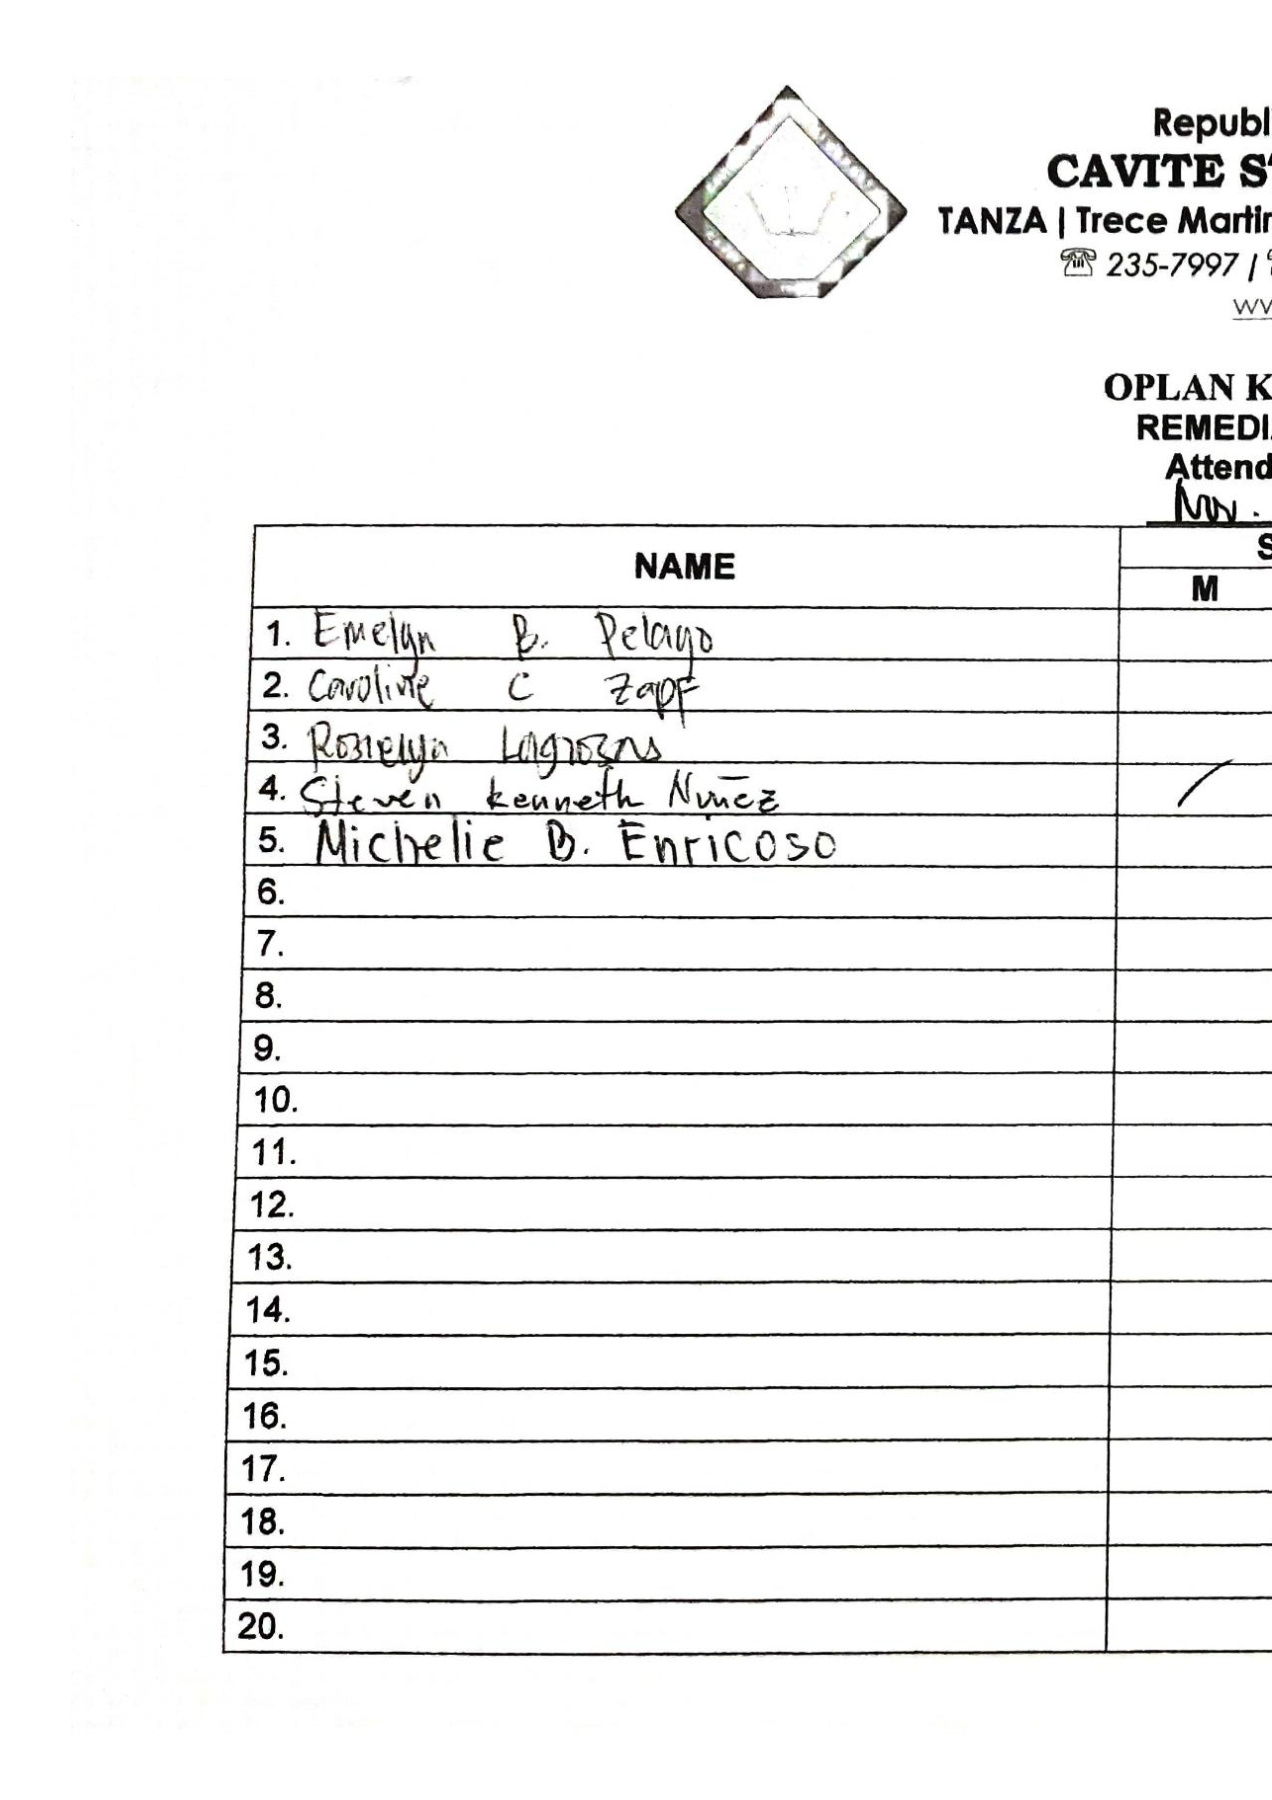 Republi
CAVITE ST
TANZA | Trece Martir
☏ 235-7997 |
OPLAN K
REMEDIA
Attend
Nov.
NAME
S
M
1. Emelyn B. Pelayo
2. Caroline C Zapf
3. Roselyn
4. Steven Kenneth Nuñez
5. Michelie B. Enricoso
6.
7.
8.
9.
10.
11.
12.
13.
14.
15.
16.
17.
18.
19.
20.